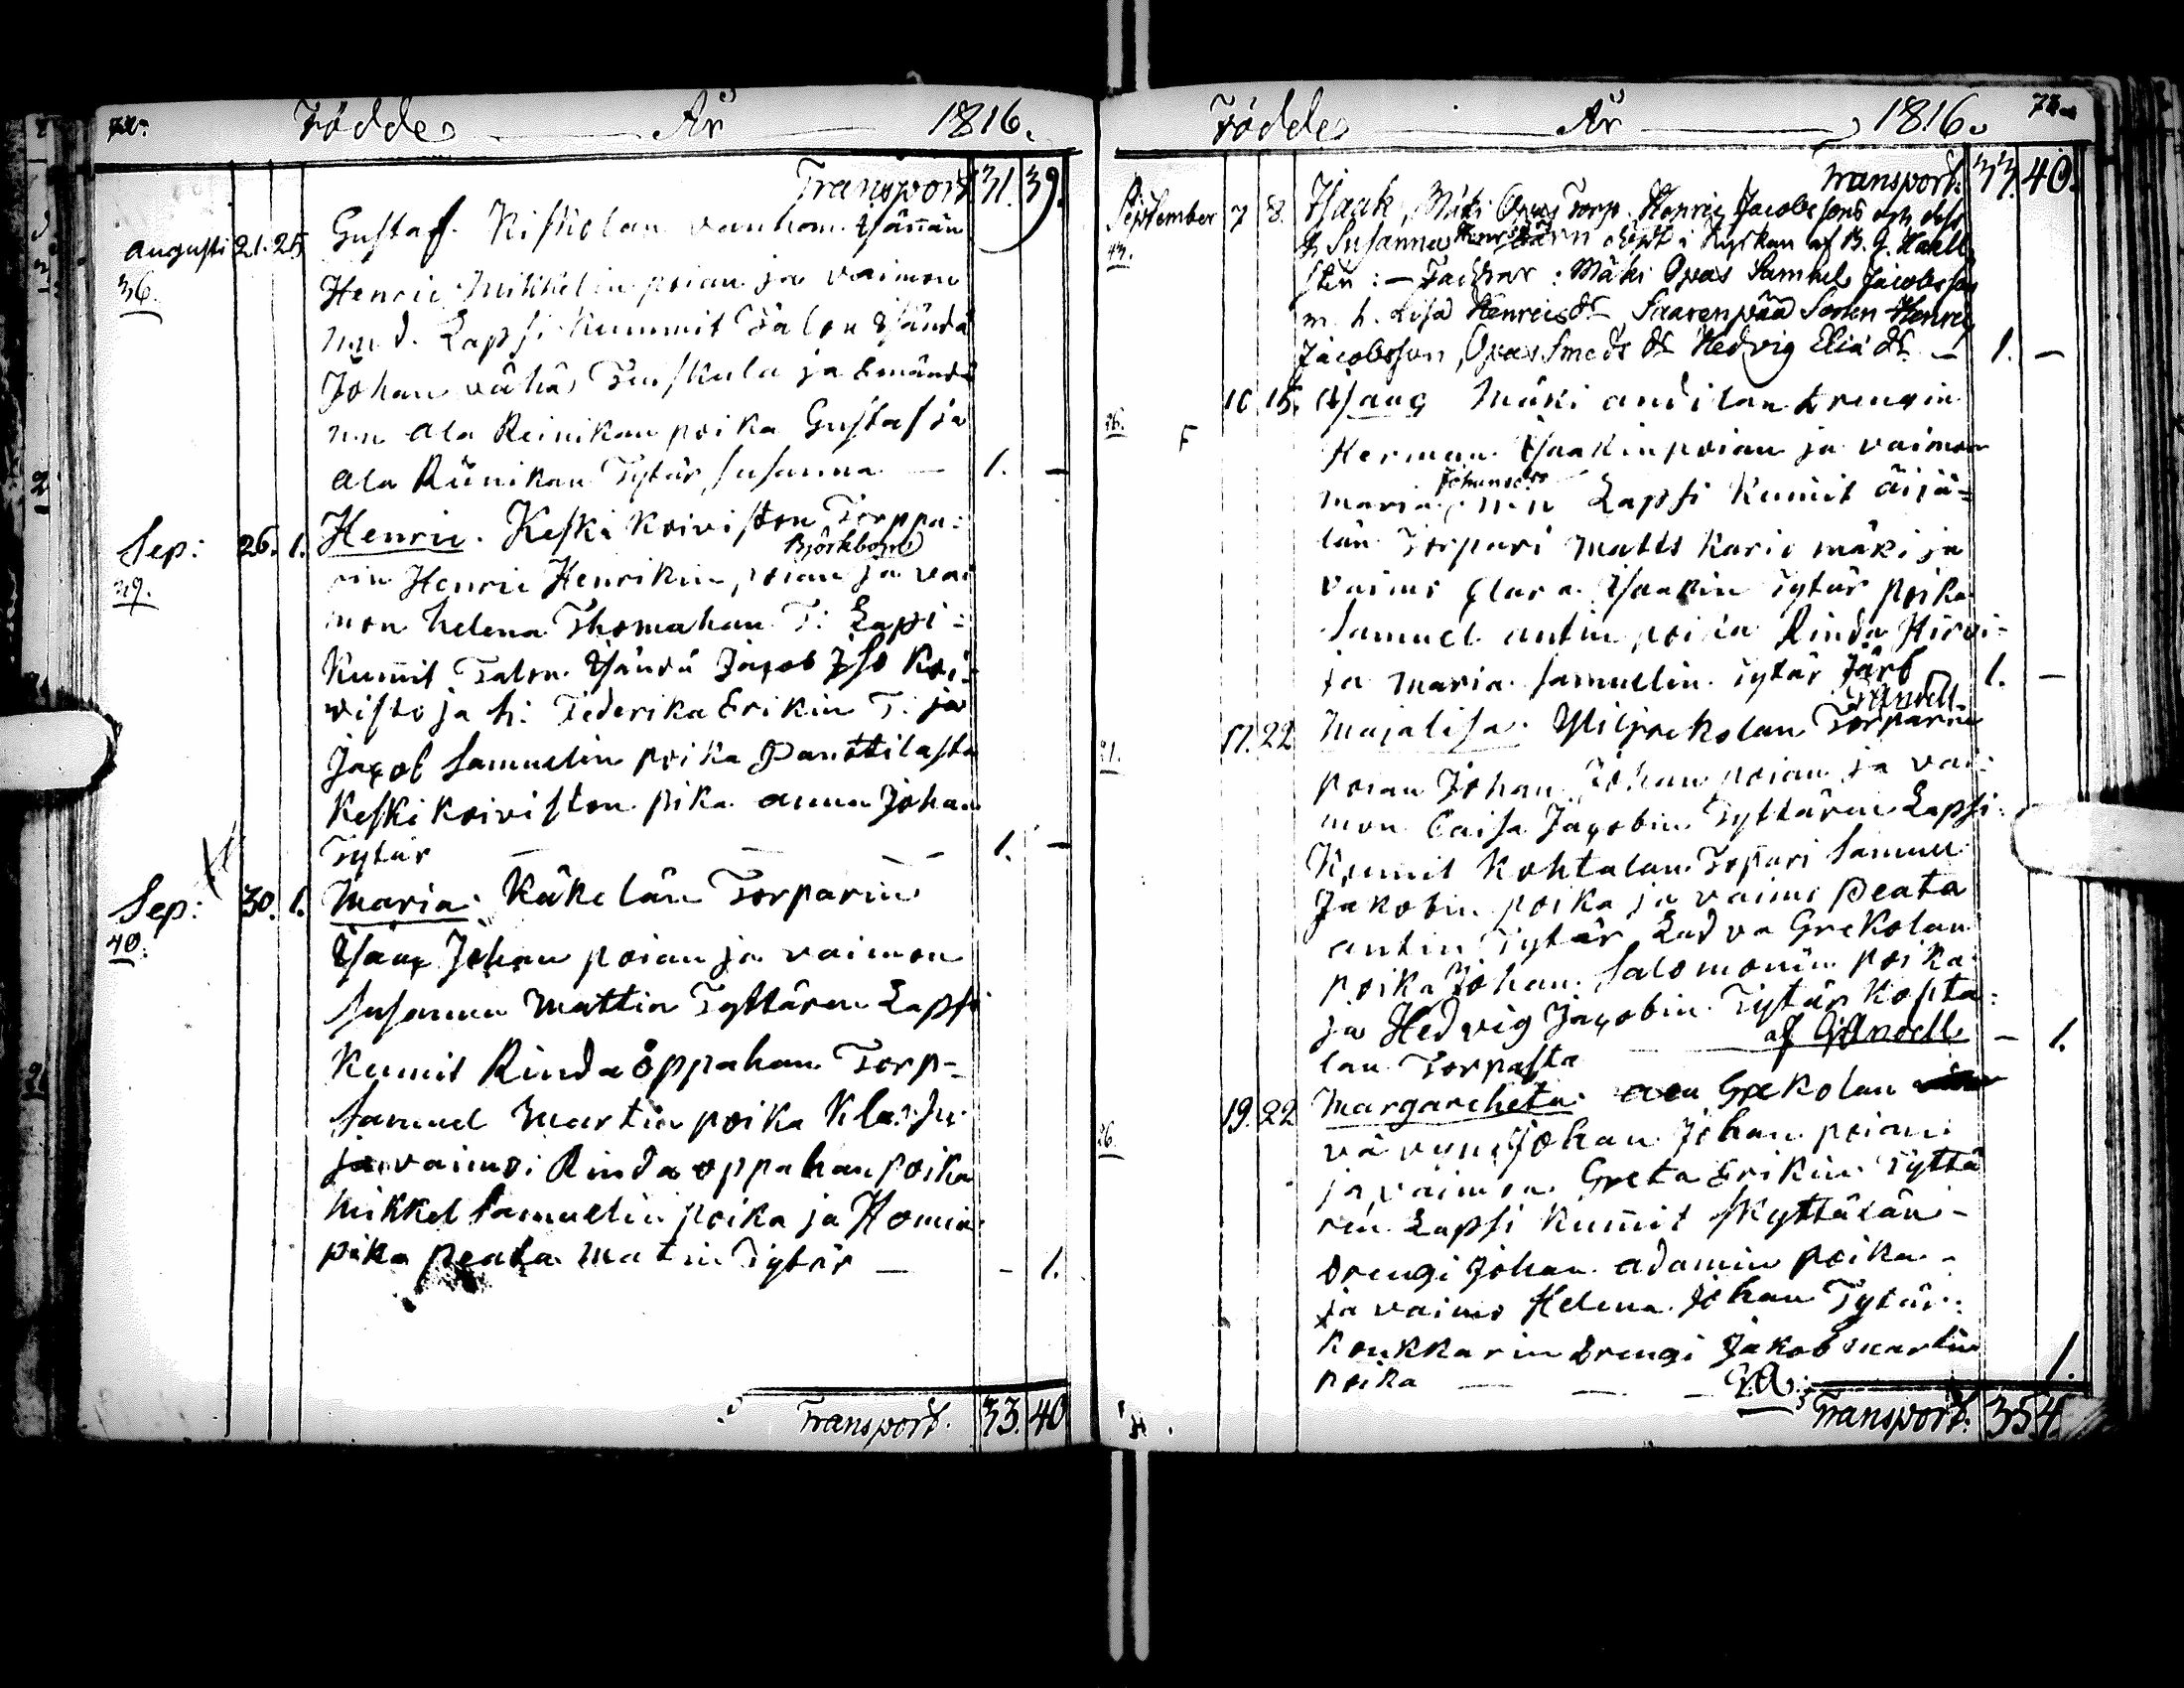 Födde År 1816.
Transport 31. 39.
Augusti 21. 25 Gustaf. Kiskolan vanhan Isännän
36. Henric Mikkelin poian ja vaimon
n.n.d. Lapsi Kummit Talon Isändä
Johan vähä Tuiskula ja Emändä
n.n Ala Reinikan poika Gustaf ja
Ala Rünikan Tytär Susanna — 1. —
Sep: 26. 1. Henric. Keski Koiviston Torppa:
Björkbom
39. rin Henric Henrikin poian ja vai
mon helena Thomahan T: Lapsi:
Kummit Talon Isändä Jacob Iso Koi:
visto ja h: Federika Erikin T: ja
Jacob Samuelin poika Panttilasta
Keski Koiviston pika anna Johan
Tytär — — — 1. —
Sep: 30. 1. Maria. Käkelän Torparin
40. Isaac Johan poian ja vaimon
Susanna Mattin Tyttären Lapsi
Kumit Rinda öppahan Torp-
Samuel Martin poika
ja vaimoi Rinda oppahan poika
Mikkel Samuelin poika ja
pika Peata Matin Tytär — - 1.
Transport. 33. 40
Födde År 1816.
Transport. 33. 40.
September 7 8. Isaak, Mäki Opas Torp. Henric Jacobssons och dess
43. h. Susanna Henricsdr Barn döpt i Kyrkan af B. G. Haell
sten: — Faddrar: Mäki Opas Samuel Jacobsson
m. h. Lisa Henricsdr Saarenpää Sonen Henric
Jacobsson, Opas Smeds dr Hedvig Eliædr — 1. —
10 15. Isaac Mäki andilan drengin
46. F Herman Isaakin poian ja vaimon
Johansdr
maria n.n Lapsi Kumit äijä=
län Torpari Matts Kario mäki ja
vaimo Clara Isaakin Tytär poika
Samuel antin poika Rinda Hirvi-
ja Maria Samuelin Tytär Järf 1. —
17. 22 Majalisa. Torparin
21. poian Johan Johan poian ja vai:
mon Caisa Jacobin Tyttären Lapsi:
Kumit Kohtalan Topari Samuel
Jakobin poika ja vaimo Peata
antin Tytär Ladva Grekolan
poika Johan Salomonin poika
ja Hedvig Jacobin Tytär Kopta:
lan Torpasta — 1.
19. 22 Margareheta. Grekolan
26. vävyn Johan Johan poian
ja vaimon Greta Erikin Tyttä
rin Lapsi Kumit Skyttälän-
Drengi Johan adamin poika -
ja vaimo Helena Johan Tytär:
Koukkarin drengi Jakob martin
poika — — — 1.
Transport. 35 4